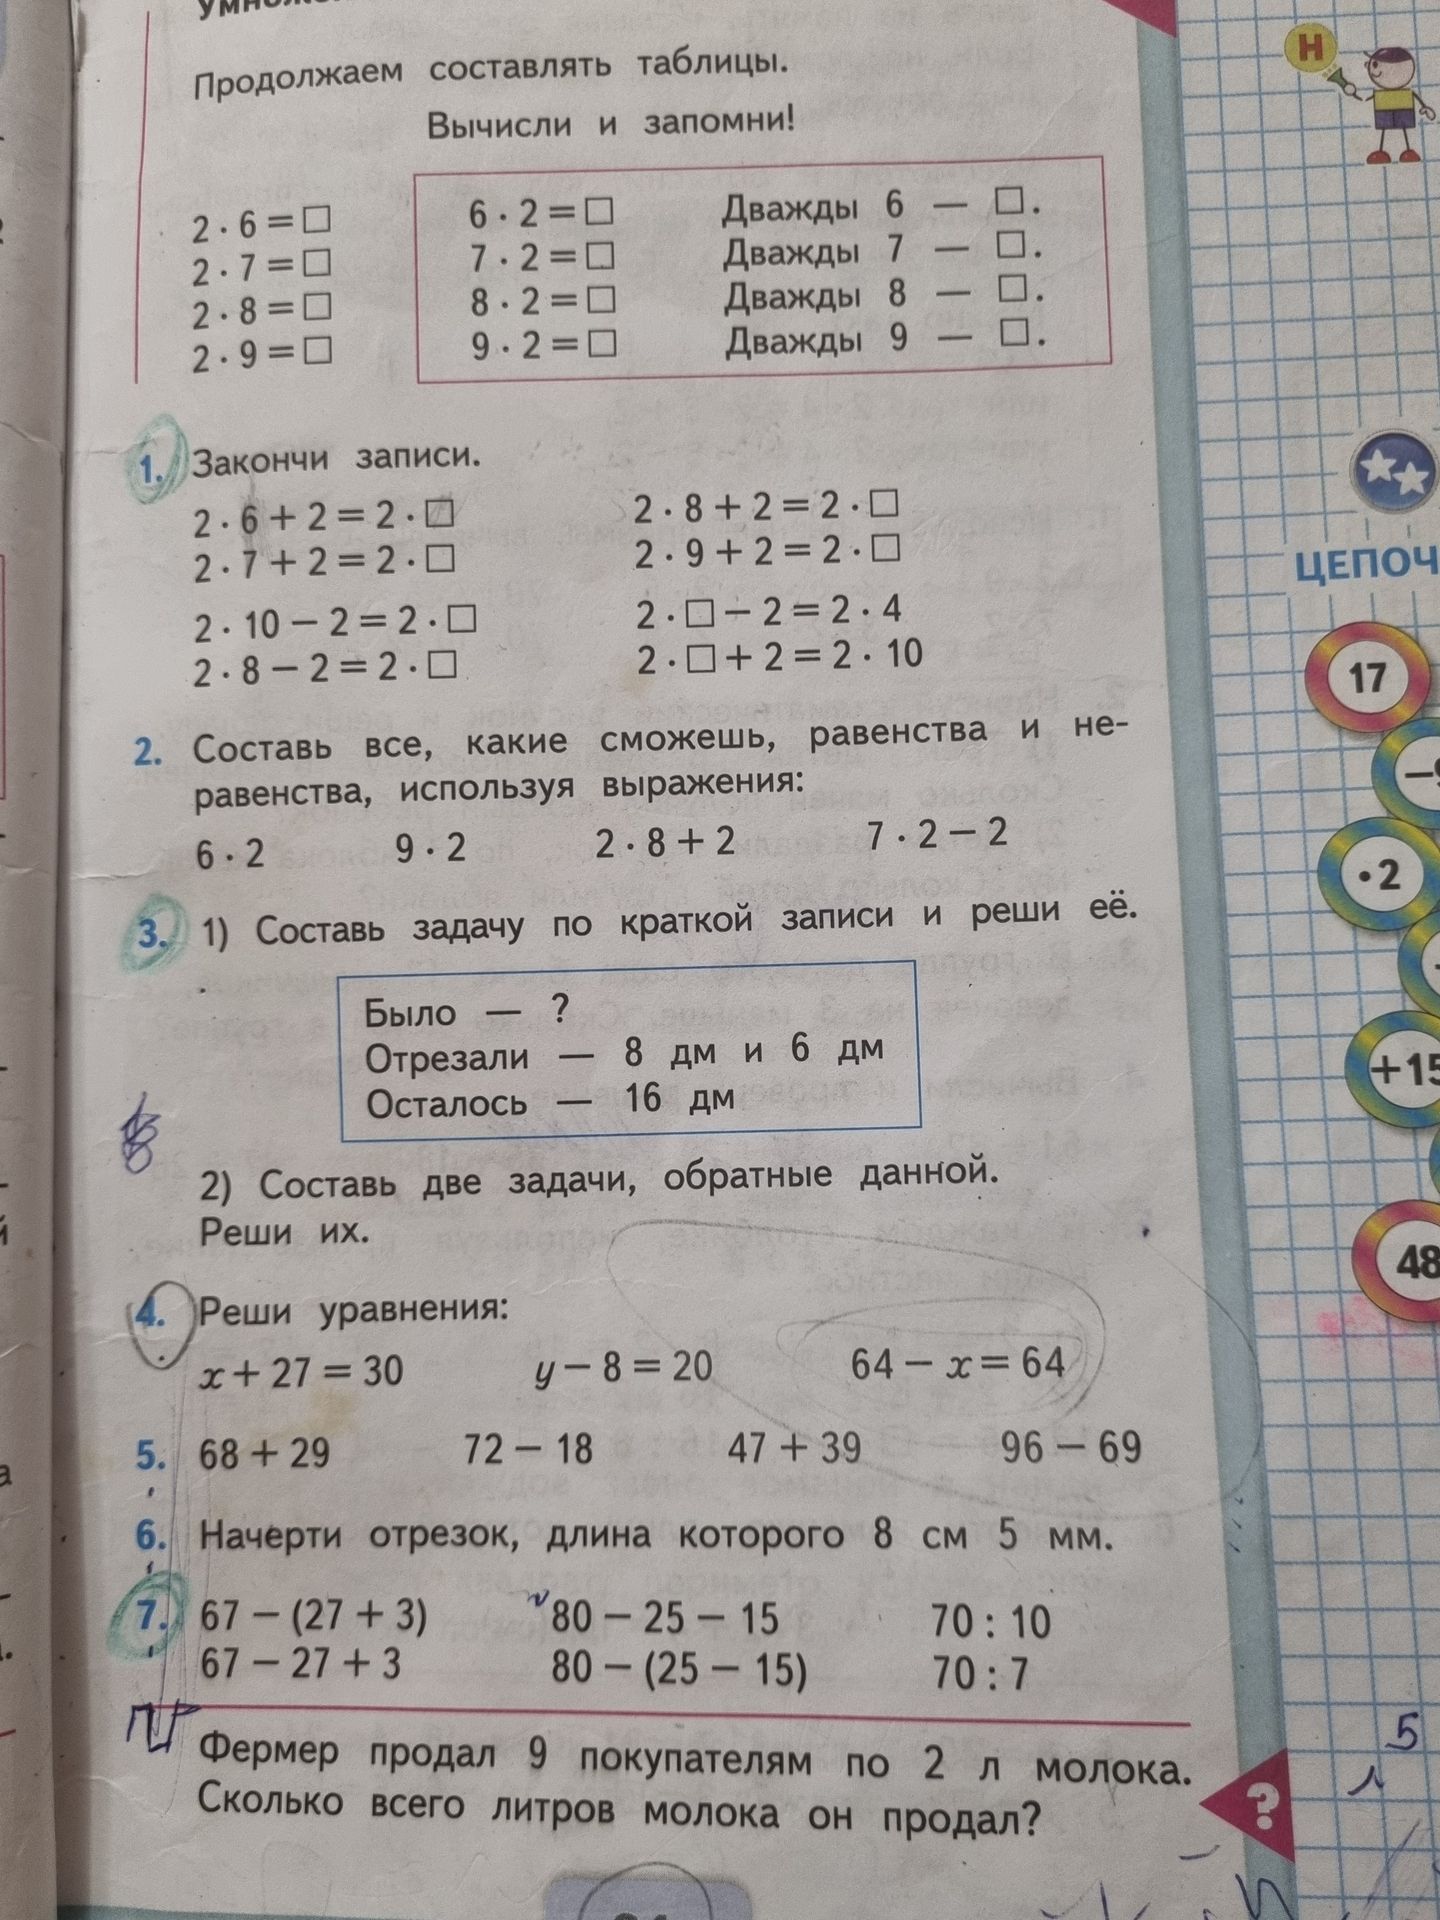 Продолжаем составлять таблицы.
Вычисли и запомни!
2 · 6 = □ 6 · 2 = □ Дважды 6 — □.
2 · 7 = □ 7 · 2 = □ Дважды 7 — □.
2 · 8 = □ 8 · 2 = □ Дважды 8 — □.
2 · 9 = □ 9 · 2 = □ Дважды 9 — □.
1. Закончи записи.
2 · 6 + 2 = 2 · □ 2 · 8 + 2 = 2 · □
2 · 7 + 2 = 2 · □ 2 · 9 + 2 = 2 · □
2 · 10 − 2 = 2 · □ 2 · □ − 2 = 2 · 4
2 · 8 − 2 = 2 · □ 2 · □ + 2 = 2 · 10
2. Составь все, какие сможешь, равенства и не-
равенства, используя выражения:
6 · 2 9 · 2 2 · 8 + 2 7 · 2 − 2
3. 1) Составь задачу по краткой записи и реши её.
Было — ?
Отрезали — 8 дм и 6 дм
Осталось — 16 дм
2) Составь две задачи, обратные данной.
Реши их.
4. Реши уравнения:
x + 27 = 30 y − 8 = 20 64 − x = 64
5. 68 + 29 72 − 18 47 + 39 96 − 69
6. Начерти отрезок, длина которого 8 см 5 мм.
7. 67 − (27 + 3) 80 − 25 − 15 70 : 10
67 − 27 + 3 80 − (25 − 15) 70 : 7
Фермер продал 9 покупателям по 2 л молока.
Сколько всего литров молока он продал?
?
Н
ЦЕПОЧ
17
· 2
+15
48
5